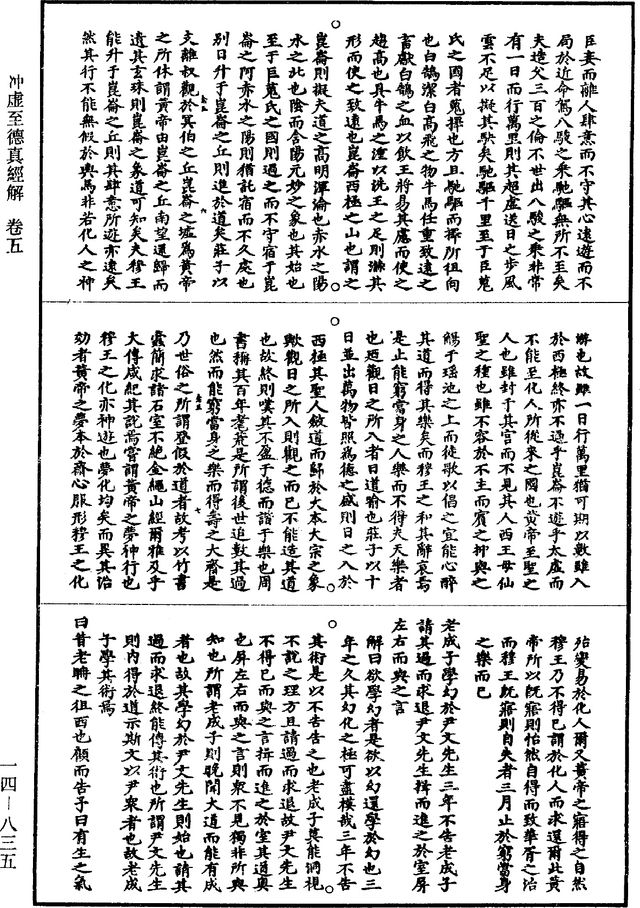 臣妾而離人肆意而不守其心遠遊而不
局於近命駕八駿之乘馳驅無所不至矣
夫造父三百之倫不世出八駿之乘非常
有一日而行萬里則其超虛送日之步風
雲不足以擬其駃矣馳驅千里至于巨蒐
氏之國者蒐擇也方且馳驅而擇所徂向
也白鵠潔白高飛之物牛馬任重致遠之
畜獻白鵠之血以飲王將易其慮而使之
趨高也具牛馬之湩以洗王之足則滌其
形而使之致遠也崑崙西極之山也謂之
崑崙則擬夫道之高明渾淪也赤水之陽
水之北也陰而含陽元妙之象也其始也
至于巨蒐氏之國則過之而不守宿于崑
崙之阿赤水之陽則猶託宿而不久處也
別日升于崑崙之丘則進於道矣莊子以
支離叔觀於冥伯之丘崑崙之墟為黃帝
之所休謂黃帝由崑崙之丘南望還歸而
遺其玄珠則崑崙之象道可知矣夫穆王
能升于崑崙之丘則其肆意所遊亦遠矣
然其行不能無假於輿馬非若化人之神
遊也故雖一日行萬里猶可期以數雖入
於西極終亦不過乎崑崙不遊乎太虛而
不能至化人所從來之國也黃帝至聖之
人也雖封于其宮而不見其人西王母仙
聖之種也雖不容於不主而賓之抑與之
觴于瑤池之上而徒歌以倡之宜能心醉
其道而得其樂矣而穆王之和其辭哀焉
是止能窮當身之人樂而不得夫天樂者
也迺觀日之所入者日道喻也莊子以十
日並出萬物皆照為德之盛則日之入於
西極其聖人斂道而歸於大本大宗之象
歟觀日之所入則觀之而已不能造其道
也故終則嘆其不盈于德而諧于樂也周
書稱其百年耄荒是所謂後世追數其過
也然而能窮當身之樂而得壽之大齊是
乃世俗之所謂登假於道者故考以竹書
蠹簡求諸石室不絕金繩山經爾雅及乎
大傳咸紀其說焉嘗謂黃帝之夢神行也
穆王之化亦神遊也夢化均矣而異其治
効者黃帝之夢本於齋心服形穆王之化
殆變易於化人爾又黃帝之寤得之自然
穆王乃不得已謂於化人而求還爾此黃
帝所以既寤則怡然自得而致華胥之治
而穆王既寤則自失者三月止於窮當身
之樂而已
老成子學幻於尹文先生三年不告老成子
請其過而求退尹文先生揖而進之於室屏
左右而與之言
解曰欲學幻者是欲以幻還學於幻也三
年之久其幻化之極可盡樸哉三年不告
其術是以不告告之也老成子莫能俯視
不說之理方且請過而求退故尹文先生
不得已而與之言揖而進之於室其道奧
也屏左右而與之言則衆不見獨非所與
知也所謂老成子則晚聞大道而能有成
者也故其學幻於尹文先生則始也請其
過而求退終能傳其術也所謂尹文先生
則內得於道示斯文以尹衆者也故老成
子學其術焉
曰昔老聃之徂西也顧而告予曰有生之氣
冲虛至德真經解 卷五
一四—八三五